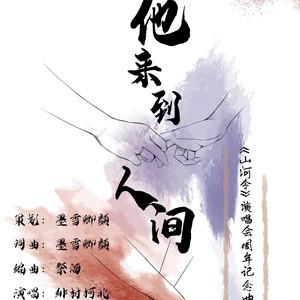 他来到人间
《山河令》演唱会周年记念曲
策划：墨雪卿颜
词曲：墨雪卿颜
编曲：祭海
演唱：绯村柯北